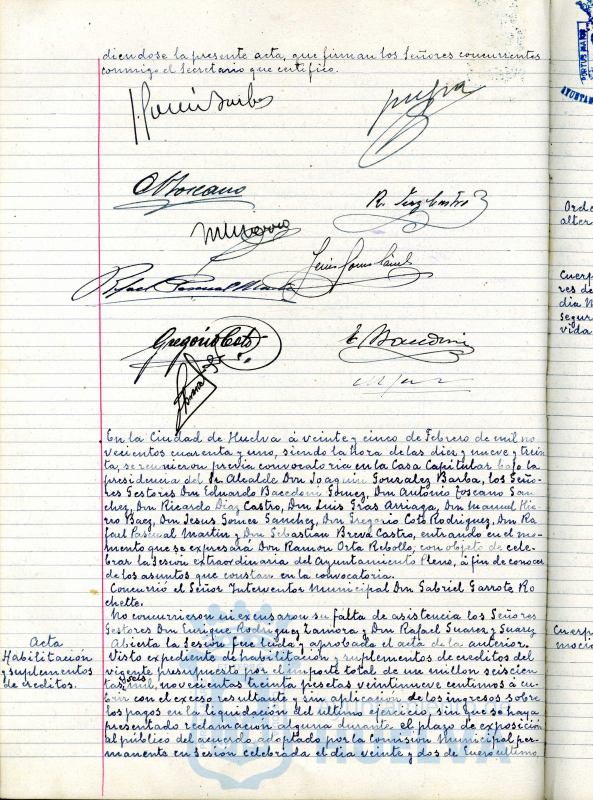 diendose la presente acta, que firman los Señores concurrentes
conmigo el Secretario que certifico.
Gregorio Coto
En la Ciudad de Huelva á veinte y cinco de Febrero de mil no
vecientos cuarenta y uno, siendo la hora de las diez y nueve y trein
ta, se reunieron previa convocatoria en la Casa Capitular bajo la
presidencia del Sr. Alcalde Don Joaquin Gonzalez Barba, los Seño-
res Gestores Don Eduardo Bacedoni Gomez, Don Antonio Toscano San
chez, Don Ricardo Diaz Castro, Don Luis Gras Arriaga, Don Manuel Hie-
rro Baez, Don Jesus Gomez Sanchez, Don Gregorio Coto Rodriguez, Don Ra
fael Pascual Martin y Don Sebastian Breva Castro, entrando en el mo-
mento que se expresará Don Ramon Orta Rebollo, con objeto de cele-
brar la Sesion extraordinaria del Ayuntamiento Pleno, á fin de conocer
de los asuntos que constan en la convocatoria.
Concurrió el Señor Interventor Municipal Don Gabriel Garrote Ro
chette.
No concurrieron ni excusaron su falta de asistencia los Señores
Gestores Don Enrique Rodriguez Zamora y Don Rafael Suarez y Suarez
Acta
Abierta la Sesion fue leida y aprobada el acta de la anterior.
Habilitación
y suplementos
de creditos.
Visto expediente de habilitacion y suplementos de creditos del
vigente presupuesto por el importe total de un millon seiscien
y seis
tas mil, novecientas treinta pesetas veintinueve centimos á cu-
brir con el exceso resultante sin aplicacion de los ingresos sobre
los pagos en la liquidacion del ultimo ejercicio, sin que se haya
presentado reclamacion alguna durante el plazo de exposición
al público del acuerdo adoptado por la Comision Municipal per-
manente en Sesion celebrada el dia veinte y dos de Enero ultimo,
Orde
alter
Cuerp
res de
dia M
segur
vida
Cuerp
moció